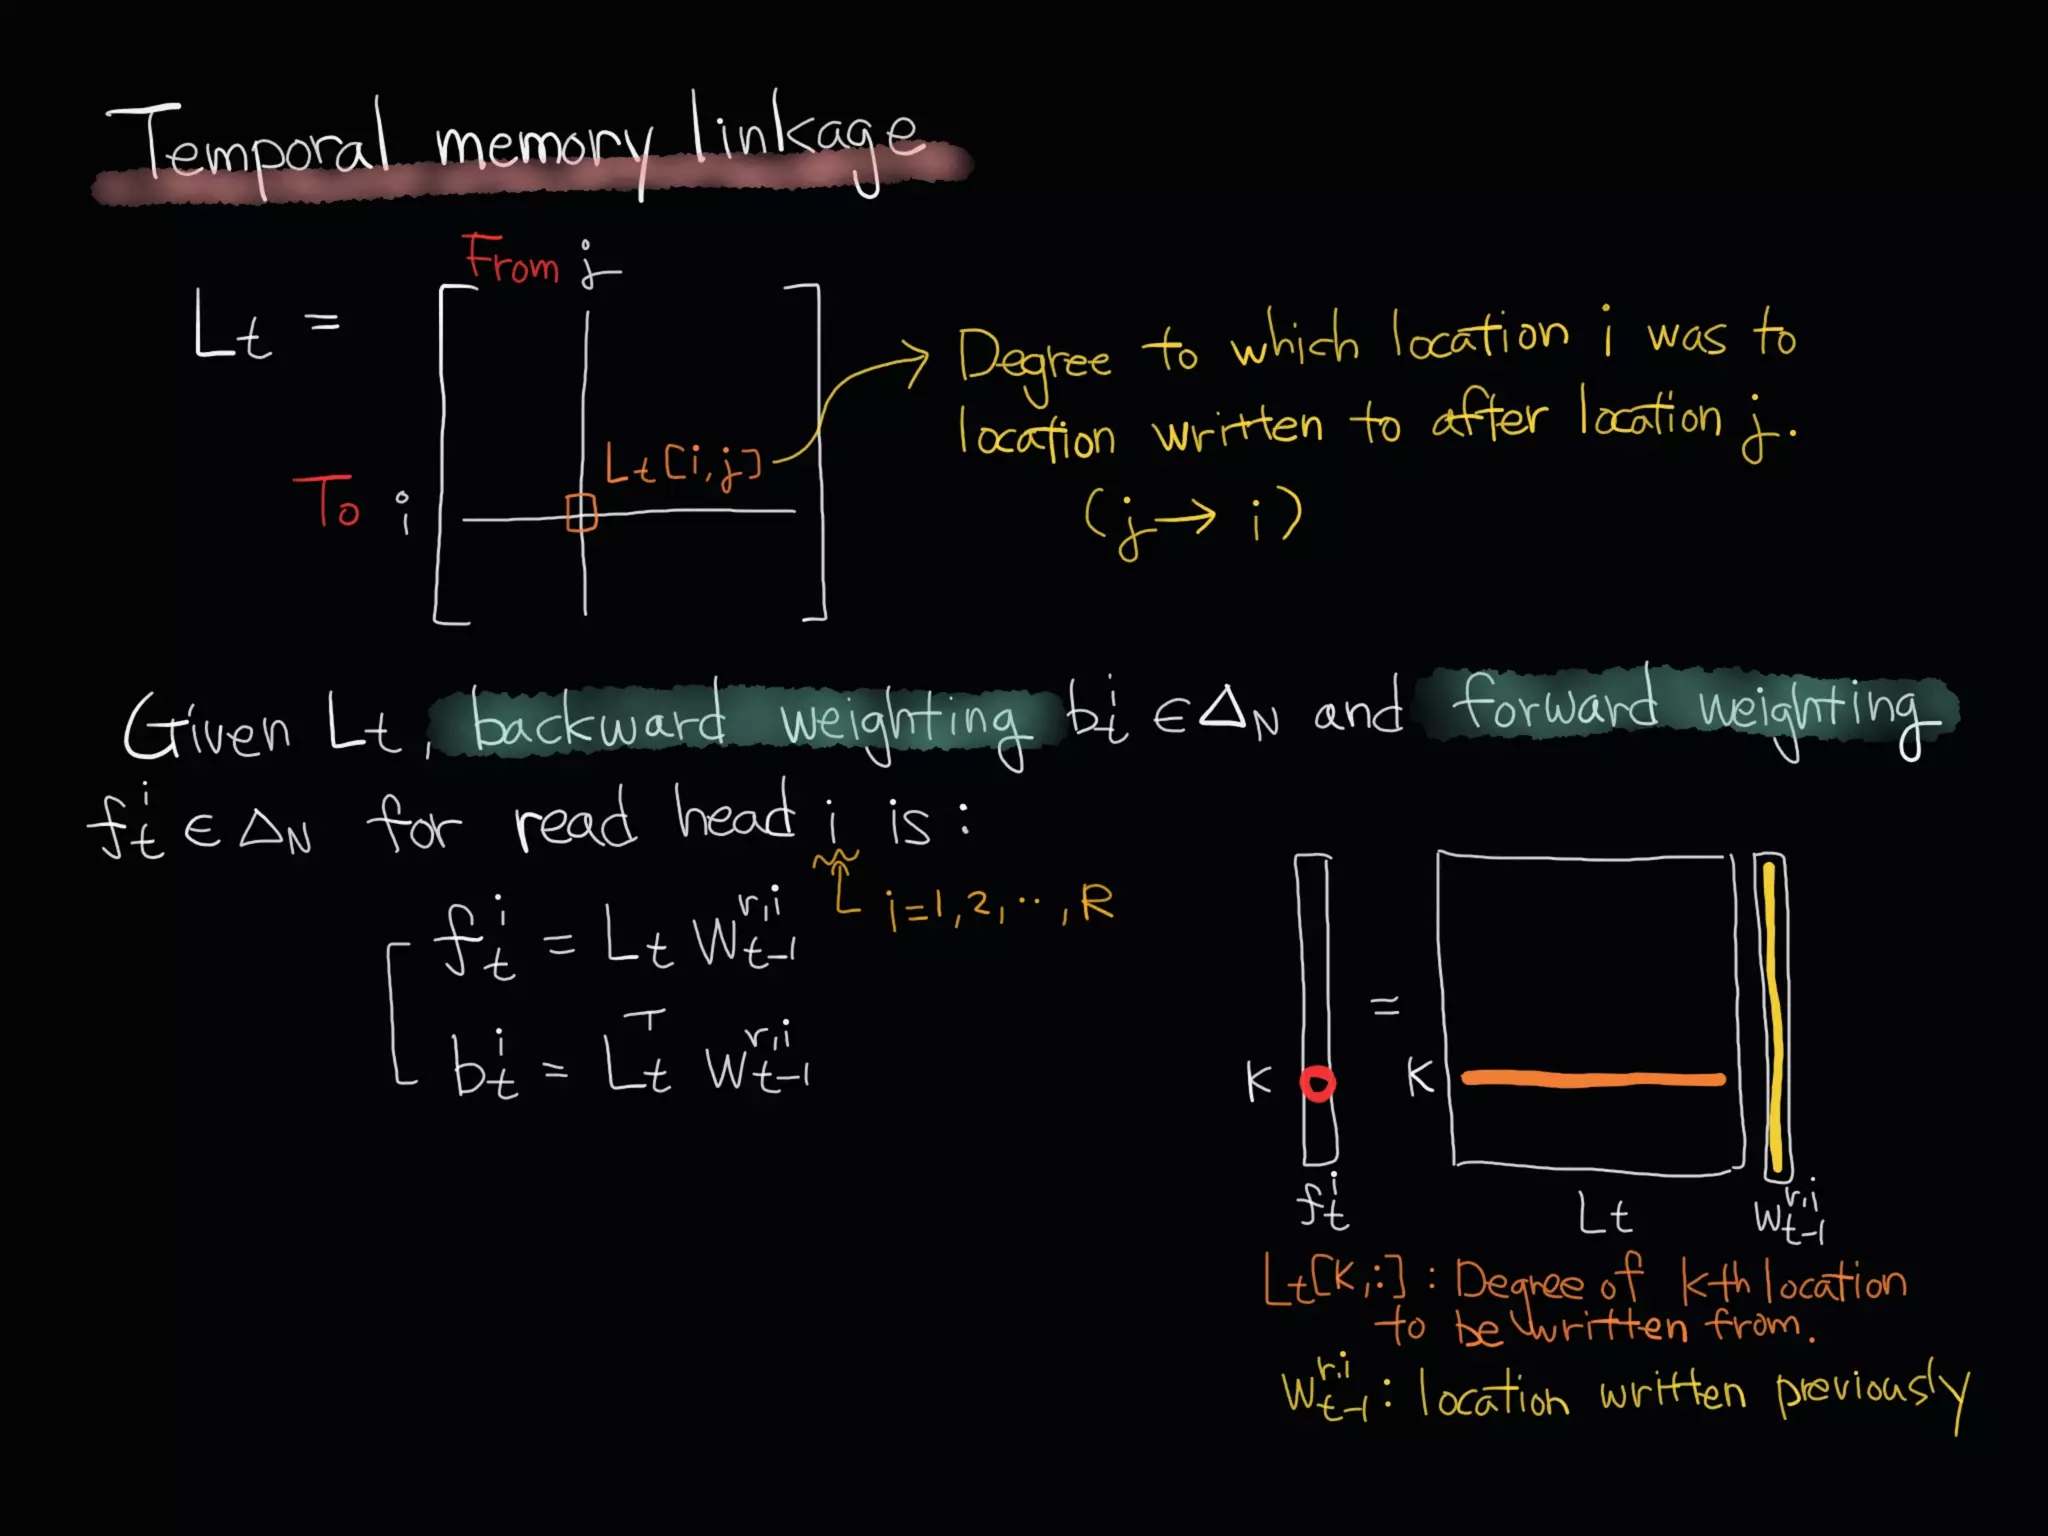 Temporal memory linkage
From j
Lt =
To i
Lt[i,j]
Degree to which location i was to
location written to after location j.
(j → i)
Given Lt, backward weighting b_t^i ∈ Δ_N and forward weighting
f_t^i ∈ Δ_N for read head i is :
i=1,2,..,R
f_t^i = L_t W_{t-1}^{r,i}
b_t^i = L_t^T W_{t-1}^{r,i}
K = K
f_t^i L_t W_{t-1}^{r,i}
Lt[K,:] : Degree of k-th location
to be written from.
W_{t-1}^{r,i} : location written previously